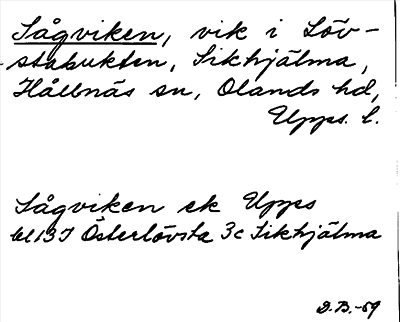 Sågviken, vik i Löv-
stabukten, Sikhjälma,
Hållnäs sn, Olands hd,
Upps. l.
Sågviken ek Upps
bl 13 I Österlövsta 3c Sikhjälma
D.B.-59